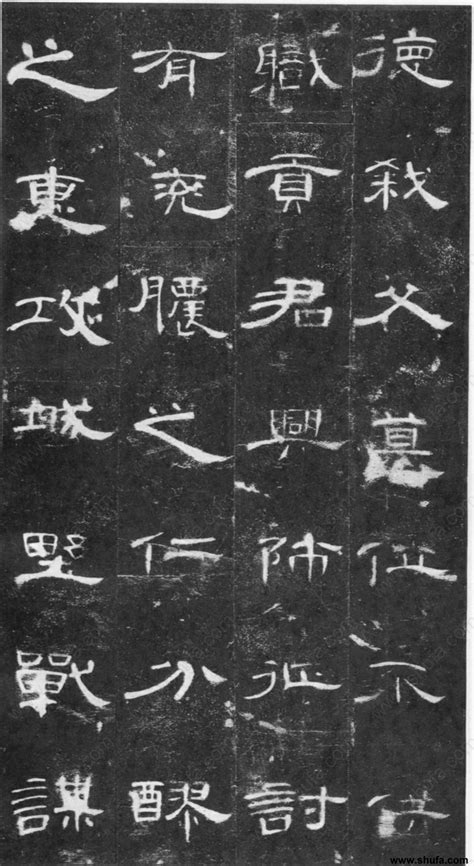 德弑父篡位不供
職貢君興師征討
有兖膿之仁分醪
之惠攻城野戰謀
www.shufa.com